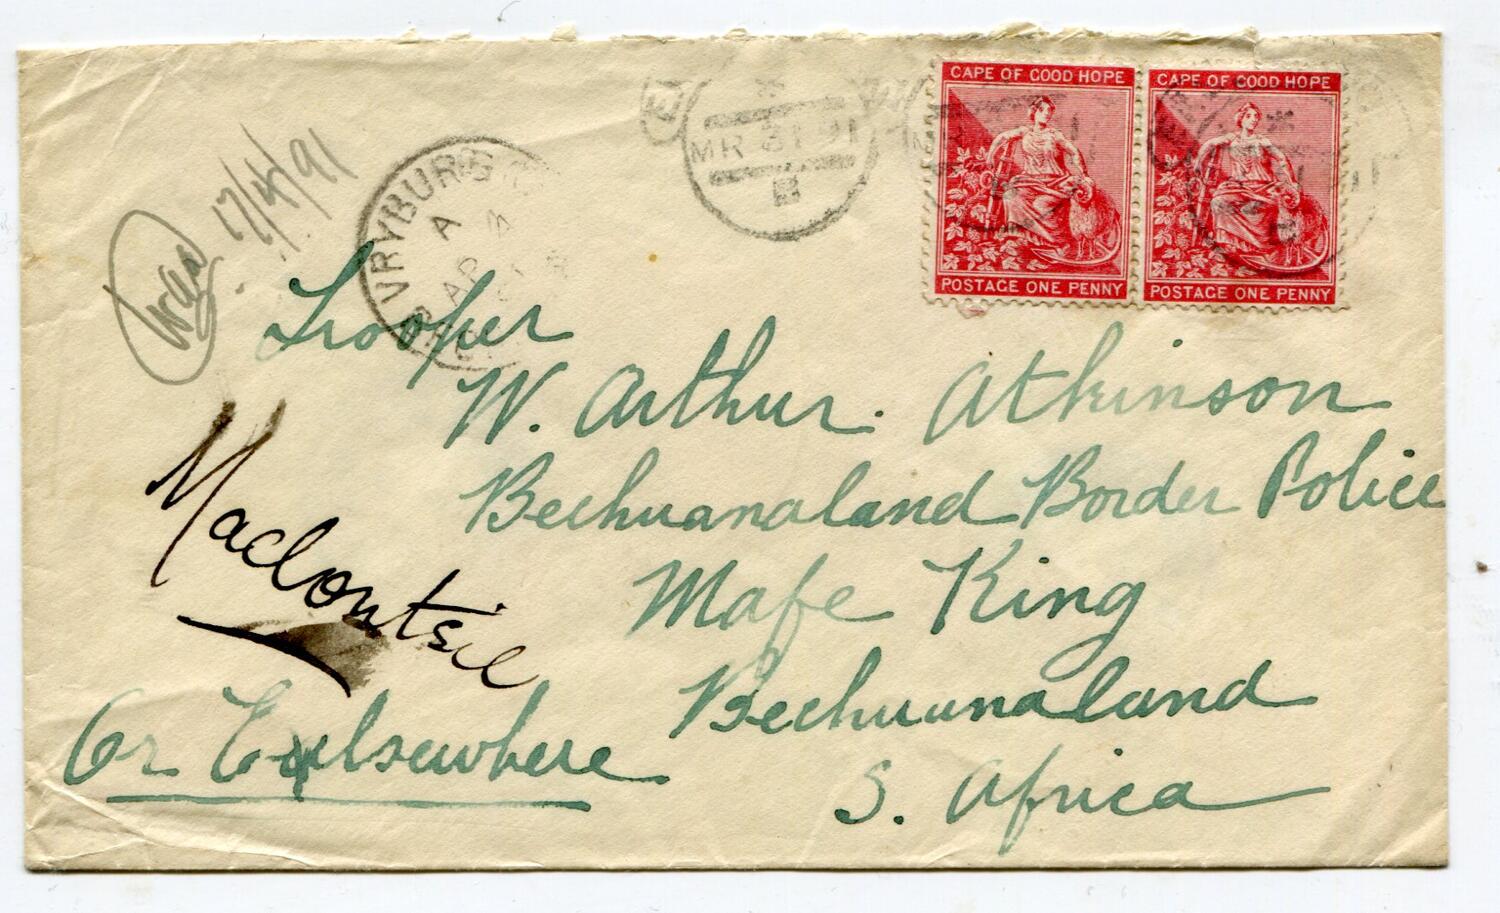 CAPE OF GOOD HOPE
POSTAGE ONE PENNY
CAPE OF GOOD HOPE
POSTAGE ONE PENNY
MR 31 91
B
VRYBURG
A
AP
17/4/91
Trooper
W. Arthur. Atkinson
Bechuanaland Border Police
Mafe King
Bechuanaland
S. Africa
Macloutsie
Or Elsewhere